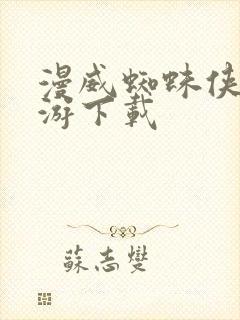 漫威蜘蛛侠
游下载
苏志燮